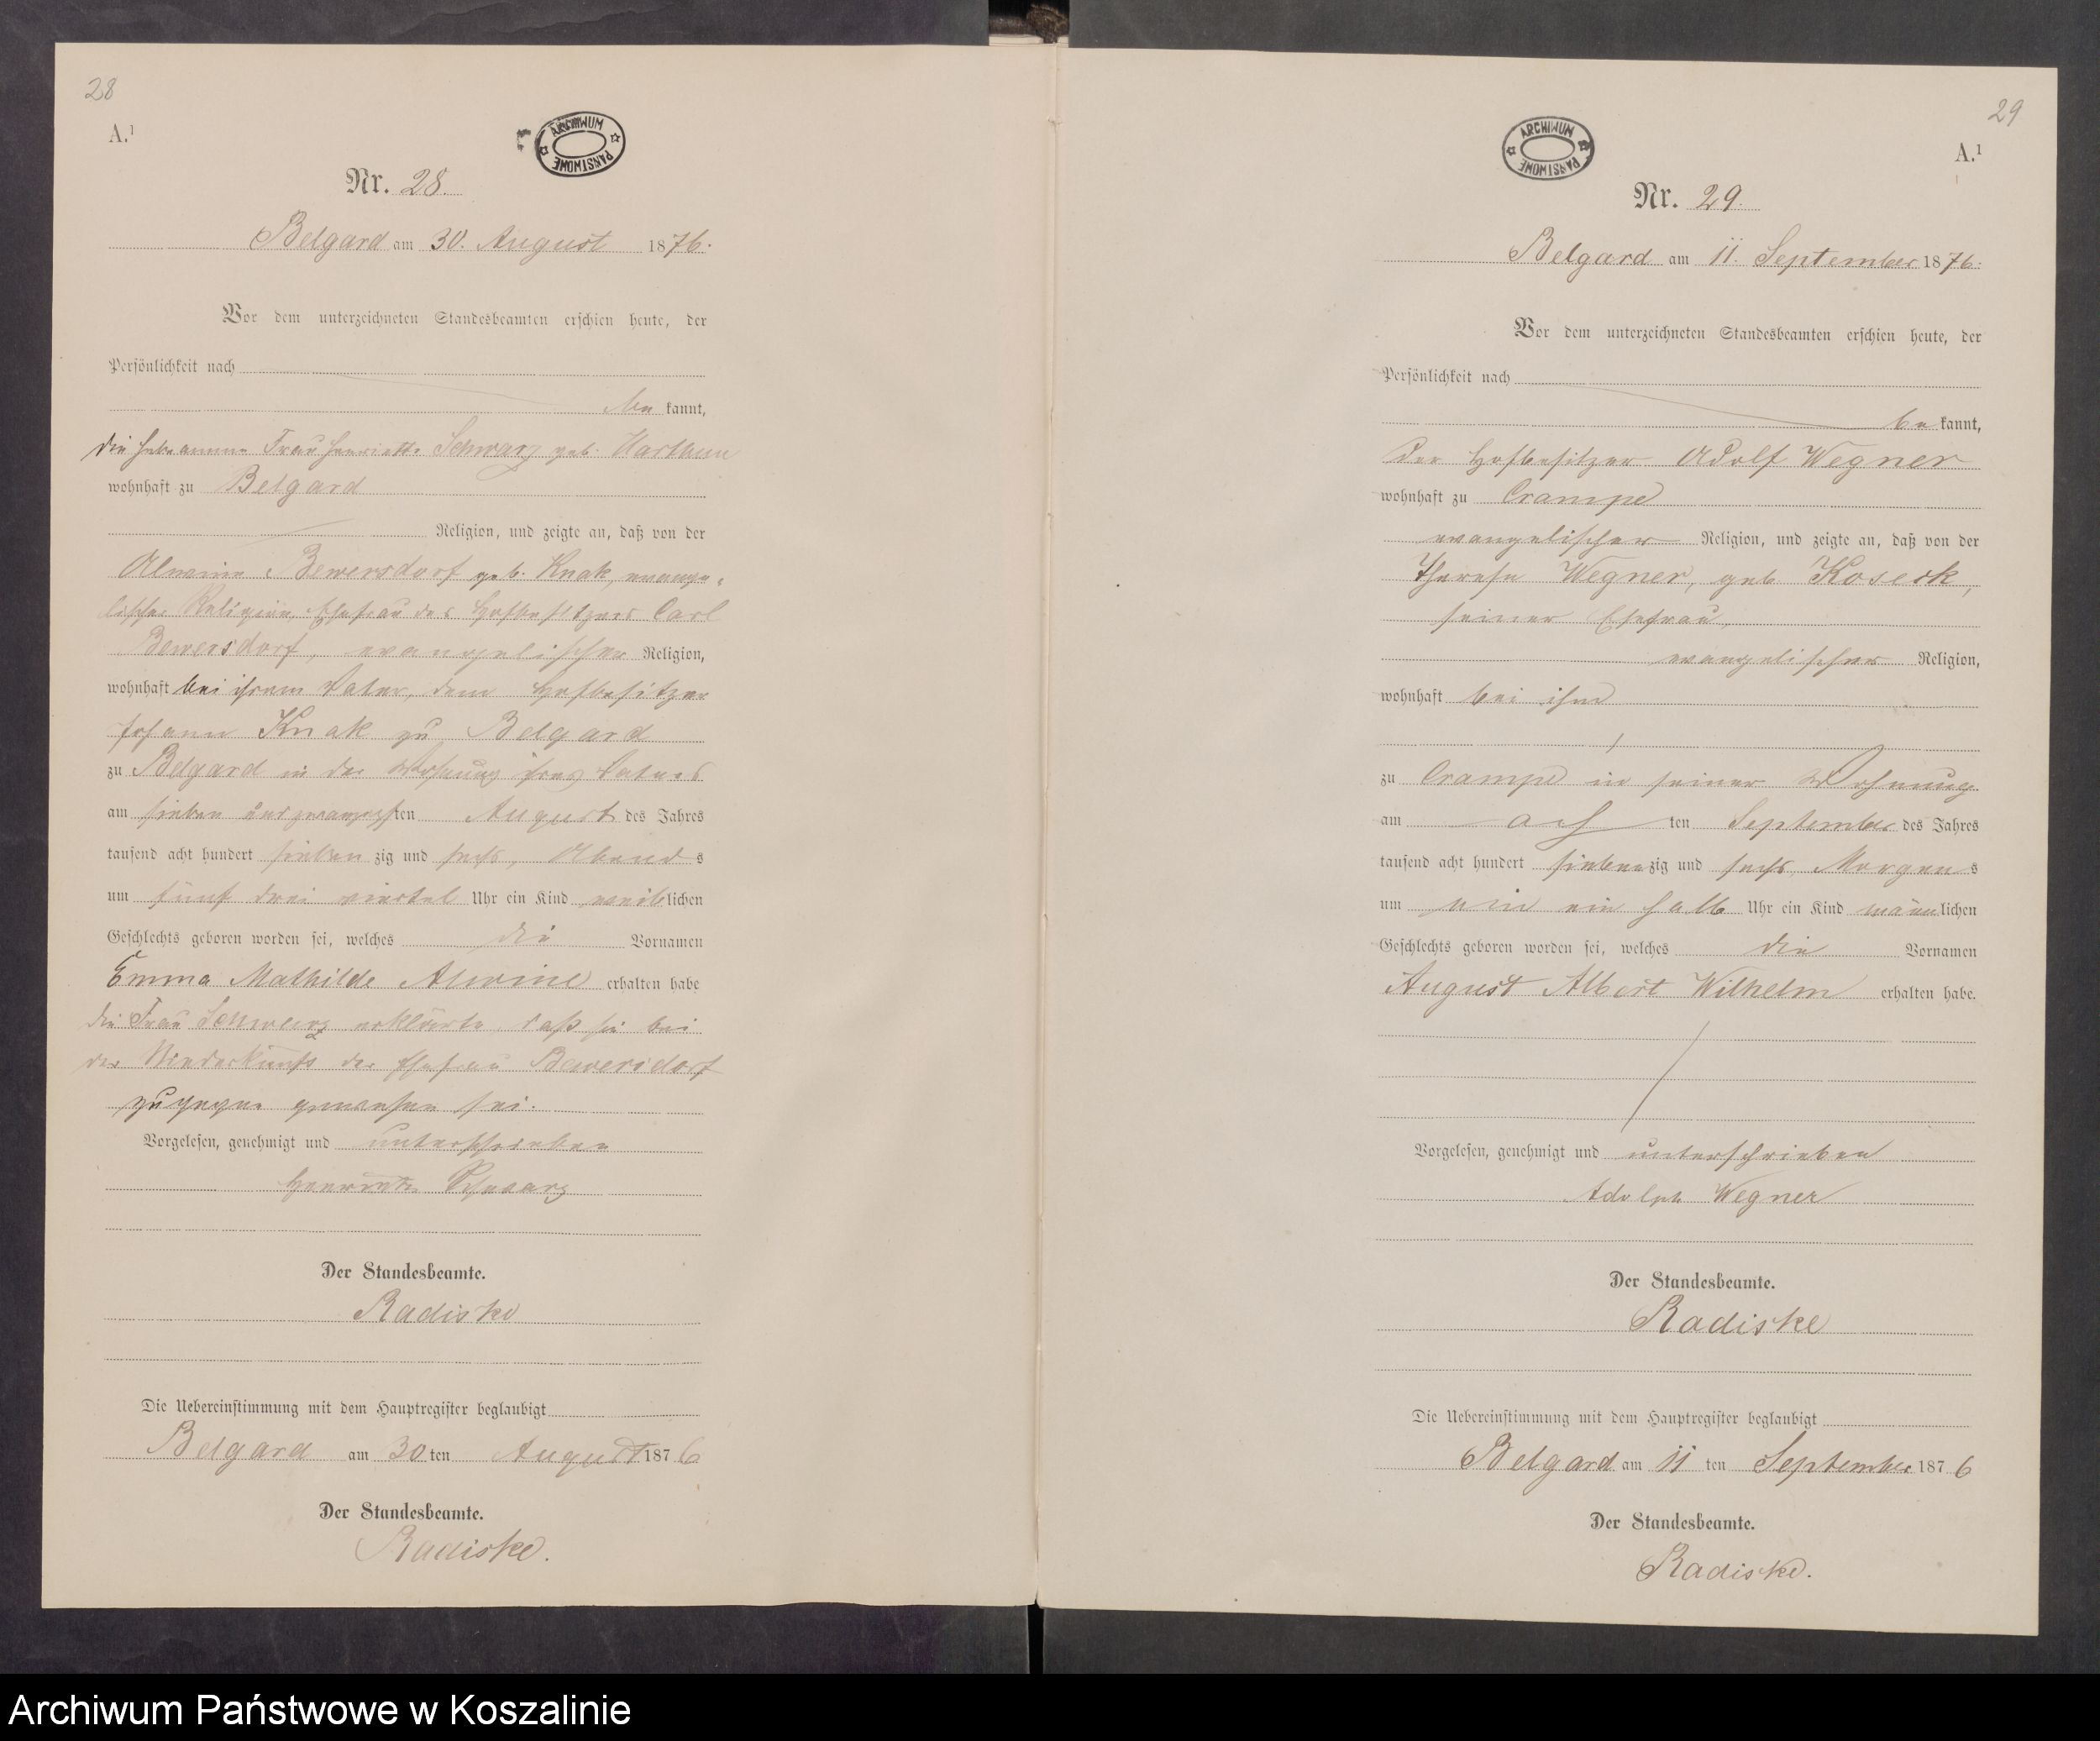 28
A.¹
ARCHIWUM PAŃSTWOWE
Nr. 28.
Belgard am 30. August 1876.
Vor dem unterzeichneten Standesbeamten erschien heute, der
Persönlichkeit nach
be kannt,
die Hebeamme Frau Henriette Schwarz geb. Harthun
wohnhaft zu Belgard
Religion, und zeigte an, daß von der
Alwine Bewersdorf geb. Knak, evange-
lischer Religion, Ehefrau des Hofbesitzers Carl
Bewersdorf, evangelischer Religion,
wohnhaft bei ihrem Vater, dem Hofbesitzer
Johann Knak zu Belgard
zu Belgard in der Wohnung ihres Vaters
am sieben und zwanzigsten August des Jahres
tausend acht hundert sieben zig und sechs, Abends
um fünf drei viertel Uhr ein Kind weiblichen
Geschlechts geboren worden sei, welches die Vornamen
Emma Mathilde Alwine erhalten habe
die Frau Schwarz erklärte, daß sie bei
der Niederkunft der Ehefrau Bewersdorf
zugegen gewesen sei.
Vorgelesen, genehmigt und unterschrieben
Henriette Schwarz
Der Standesbeamte.
Radiske
Die Uebereinstimmung mit dem Hauptregister beglaubigt
Belgard am 30 ten August 1876
Der Standesbeamte.
Radiske.
29
A.¹
ARCHIWUM PAŃSTWOWE
Nr. 29.
Belgard am 11. September 1876.
Vor dem unterzeichneten Standesbeamten erschien heute, der
Persönlichkeit nach
be kannt,
der Hofbesitzer Adolf Wegner
wohnhaft zu Crampe
evangelischer Religion, und zeigte an, daß von der
Therese Wegner, geb. Koseck,
seiner Ehefrau,
evangelischer Religion,
wohnhaft bei ihm
zu Crampe in seiner Wohnung
am ach ten September des Jahres
tausend acht hundert siebenzig und sechs Morgens
um ein ein halb Uhr ein Kind männlichen
Geschlechts geboren worden sei, welches die Vornamen
August Albert Wilhelm erhalten habe.
Vorgelesen, genehmigt und unterschrieben
Adolph Wegner
Der Standesbeamte.
Radiske
Die Uebereinstimmung mit dem Hauptregister beglaubigt
Belgard am 11 ten September 1876
Der Standesbeamte.
Radiske.
Archiwum Państwowe w Koszalinie